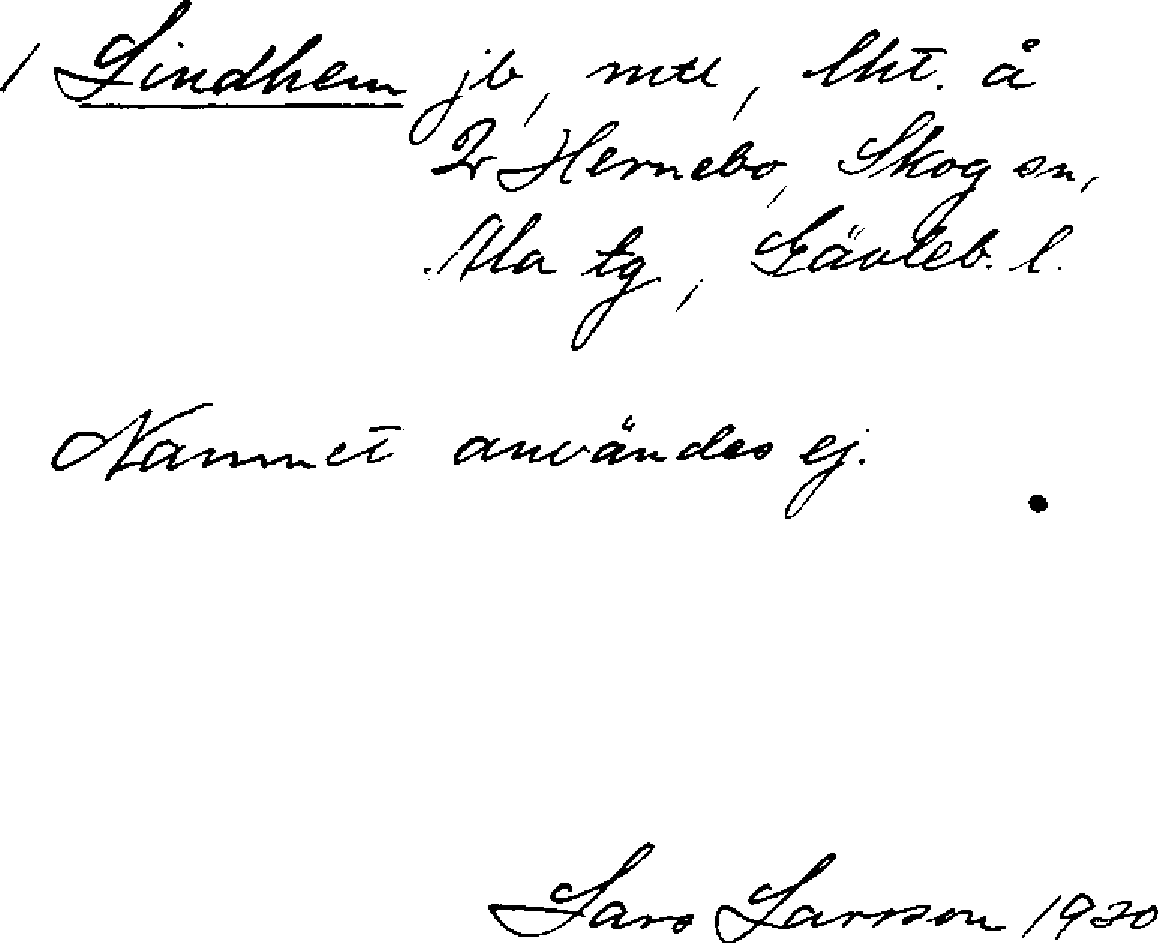 / Lindhem jb, mtl, lht. å
2 Hernebo, Skog sn,
Ala tg, Gävleb. l.
Namnet användes ej.
Lars Larsson 1930